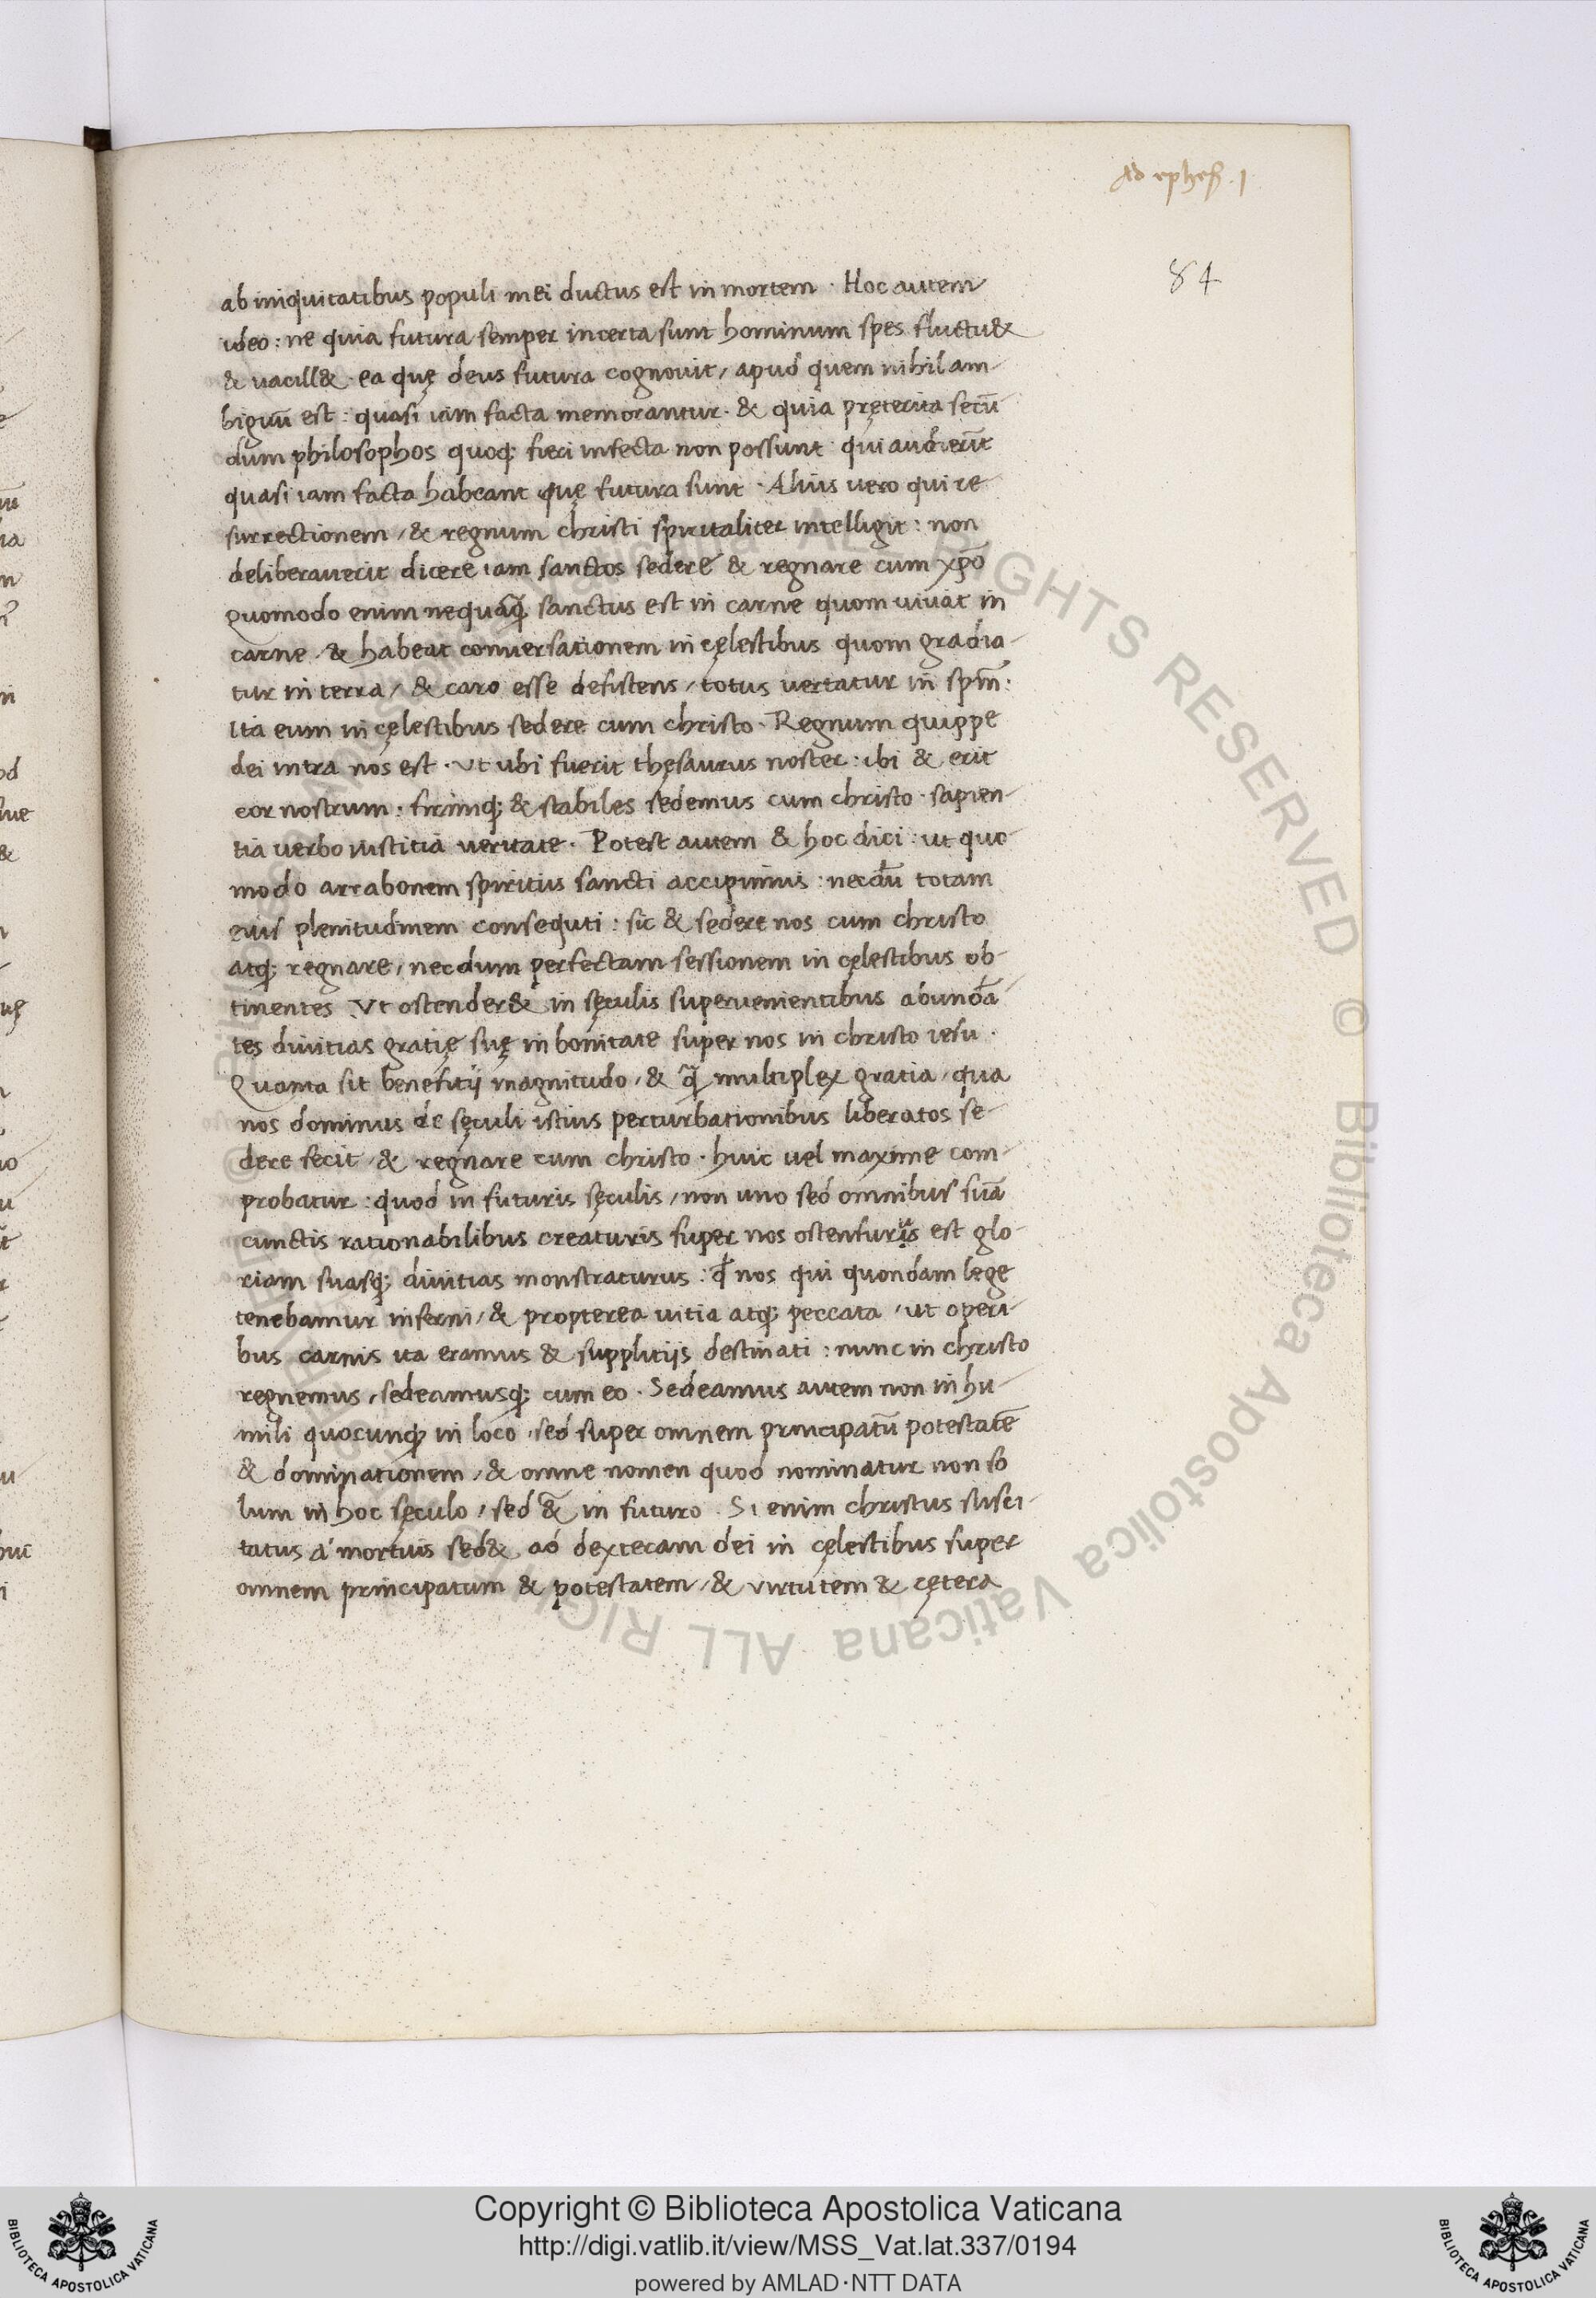 Ad ephes. 1
84
ab iniquitatibus populi mei ductus est in mortem · Hoc autem
ideo : ne quia futura semper incerta sunt hominum spes fluctu&
& vacill& · ea quę deus futura cognovit / apud quem nihil am-
biguū est : quasi iam facta memorantur · & quia pręterita secū
dum philosophos quoq; fieri infecta non possunt · qui audierūt
quasi iam facta habeant quę futura sunt · Alius vero qui re-
surrectionem / & regnum christi spiritaliter intelligit : non
deliberaverit dicere iam sanctos sedere & regnare cum xp̄o
Quomodo enim nequaq̄ sanctus est in carne quom vivat in
carne / & habeat conversationem in cęlestibus quom gradia-
tur in terra / & caro esse desistens / totus vertatur in sp̄m :
Ita eum in cęlestibus sedere cum christo · Regnum quippe
dei intra nos est · Ut ubi fuerit thęsaurus noster : ibi & erit
cor nostrum · firmiq; & stabiles sedemus cum christo · sapien-
tia verbo iustitia veritate · Potest autem & hoc dici : ut quo-
modo arrabonem spiritus sancti accipimus : necdū totam
eius plenitudinem consequti : sic & sedere nos cum christo
atq; regnare / necdum perfectam sessionem in cęlestibus ob-
tinentes Ut ostender& in sęculis supervenientibus abundā
tes divitias gratię suę in bonitate super nos in christo iesu ·
Quanta sit benefitij magnitudo / & q̄ multiplex gratia / qua
nos dominus de sęculi istius perturbationibus liberatos se-
dere fecit / & regnare cum christo · huic vel maxime com-
probatur : quod in futuris sęculis / non uno sed omnibus suā
cunctis rationabilibus creaturis super nos ostensurus est glo-
riam suasq; divitias monstraturus : q̄ nos qui quondam lege
tenebamur inferni / & propterea vitia atq; peccata / ut operi-
bus carnis ita eramus & supplitijs destinati : nunc in christo
regnemus / sedeamusq; cum eo · Sedeamus autem non in hu-
mili quocunq; in loco / sed super omnem principatū potestatē
& dominationem / & omne nomen quod nominatur non so
lum in hoc sęculo / sed &̄ in futuro · Si enim christus susci-
tatus a mortuis sed& ad dexteram dei in cęlestibus super
omnem principatum & potestatem / & virtutem & cętera
Copyright © Biblioteca Apostolica Vaticana
http://digi.vatlib.it/view/MSS_Vat.lat.337/0194
powered by AMLAD·NTT DATA